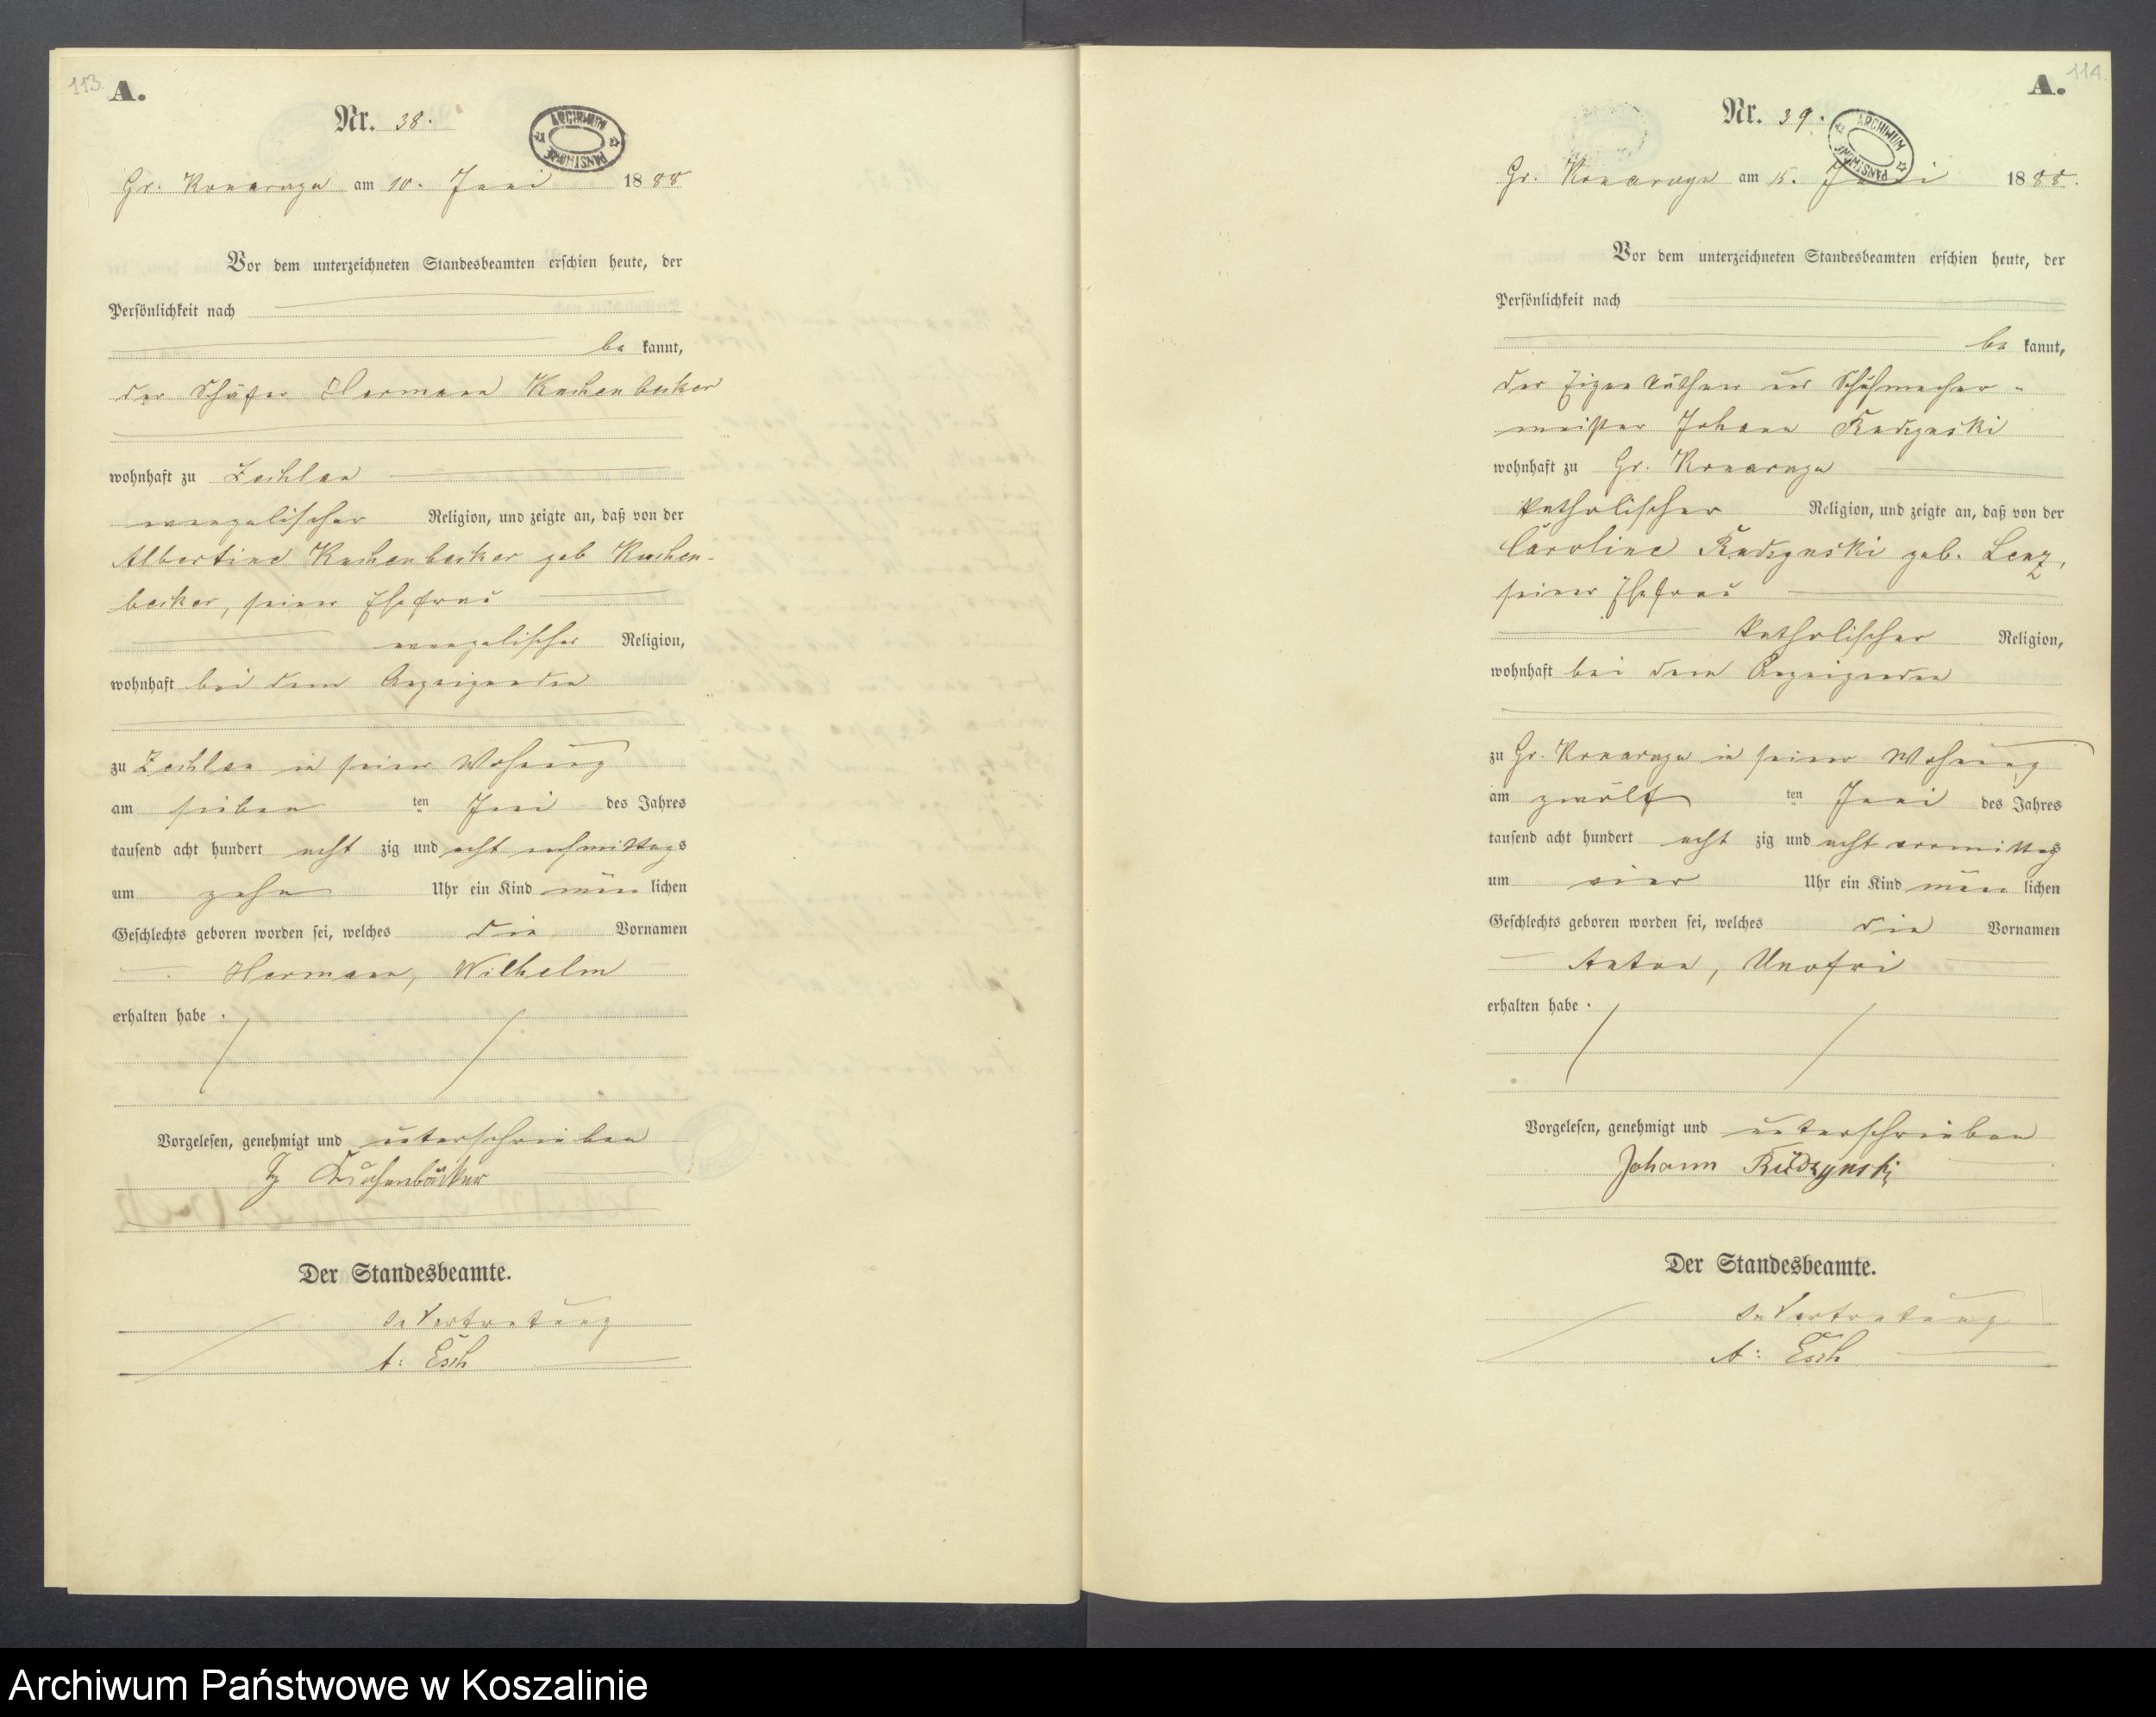 113.
A.
Nr. 38.
ARCHIWUM PAŃSTWOWE
Gr. Konarzyn am 10. Juni 1888
Vor dem unterzeichneten Standesbeamten erschien heute, der
Persönlichkeit nach
be kannt,
der Schäfer Hermann Kuchenbecker
wohnhaft zu Zechlau
evangelischer Religion, und zeigte an, daß von der
Albertine Kuchenbecker geb Kuchen-
becker, seiner Ehefrau
evangelischer Religion,
wohnhaft bei dem Anzeigenden
zu Zechlau in seiner Wohnung
am sieben ten Juni des Jahres
tausend acht hundert acht zig und acht nachmittags
um zehn Uhr ein Kind männ lichen
Geschlechts geboren worden sei, welches die Vornamen
Hermann, Wilhelm
erhalten habe.
Vorgelesen, genehmigt und unterschrieben
Kuchenbäcker
Der Standesbeamte.
In Vertretung
A: Esch
114.
A.
Nr. 39.
ARCHIWUM PAŃSTWOWE
Gr. Konarzyn am 15. Juni 1888.
Vor dem unterzeichneten Standesbeamten erschien heute, der
Persönlichkeit nach
be kannt,
der Eigenkäthner und Schuhmacher-
meister Johann Rudzynski
wohnhaft zu Gr. Konarzyn
katholischer Religion, und zeigte an, daß von der
Caroline Rudzynski geb. Lenz,
seiner Ehefrau
katholischer Religion,
wohnhaft bei dem Anzeigenden
zu Gr. Konarzyn in seiner Wohnung
am zwölf ten Juni des Jahres
tausend acht hundert acht zig und acht vormittag
um vier Uhr ein Kind männ lichen
Geschlechts geboren worden sei, welches die Vornamen
Anton, Unofri
erhalten habe.
Vorgelesen, genehmigt und unterschrieben
Johann Rudzynski
Der Standesbeamte.
In Vertretung
A: Esch
Archiwum Państwowe w Koszalinie